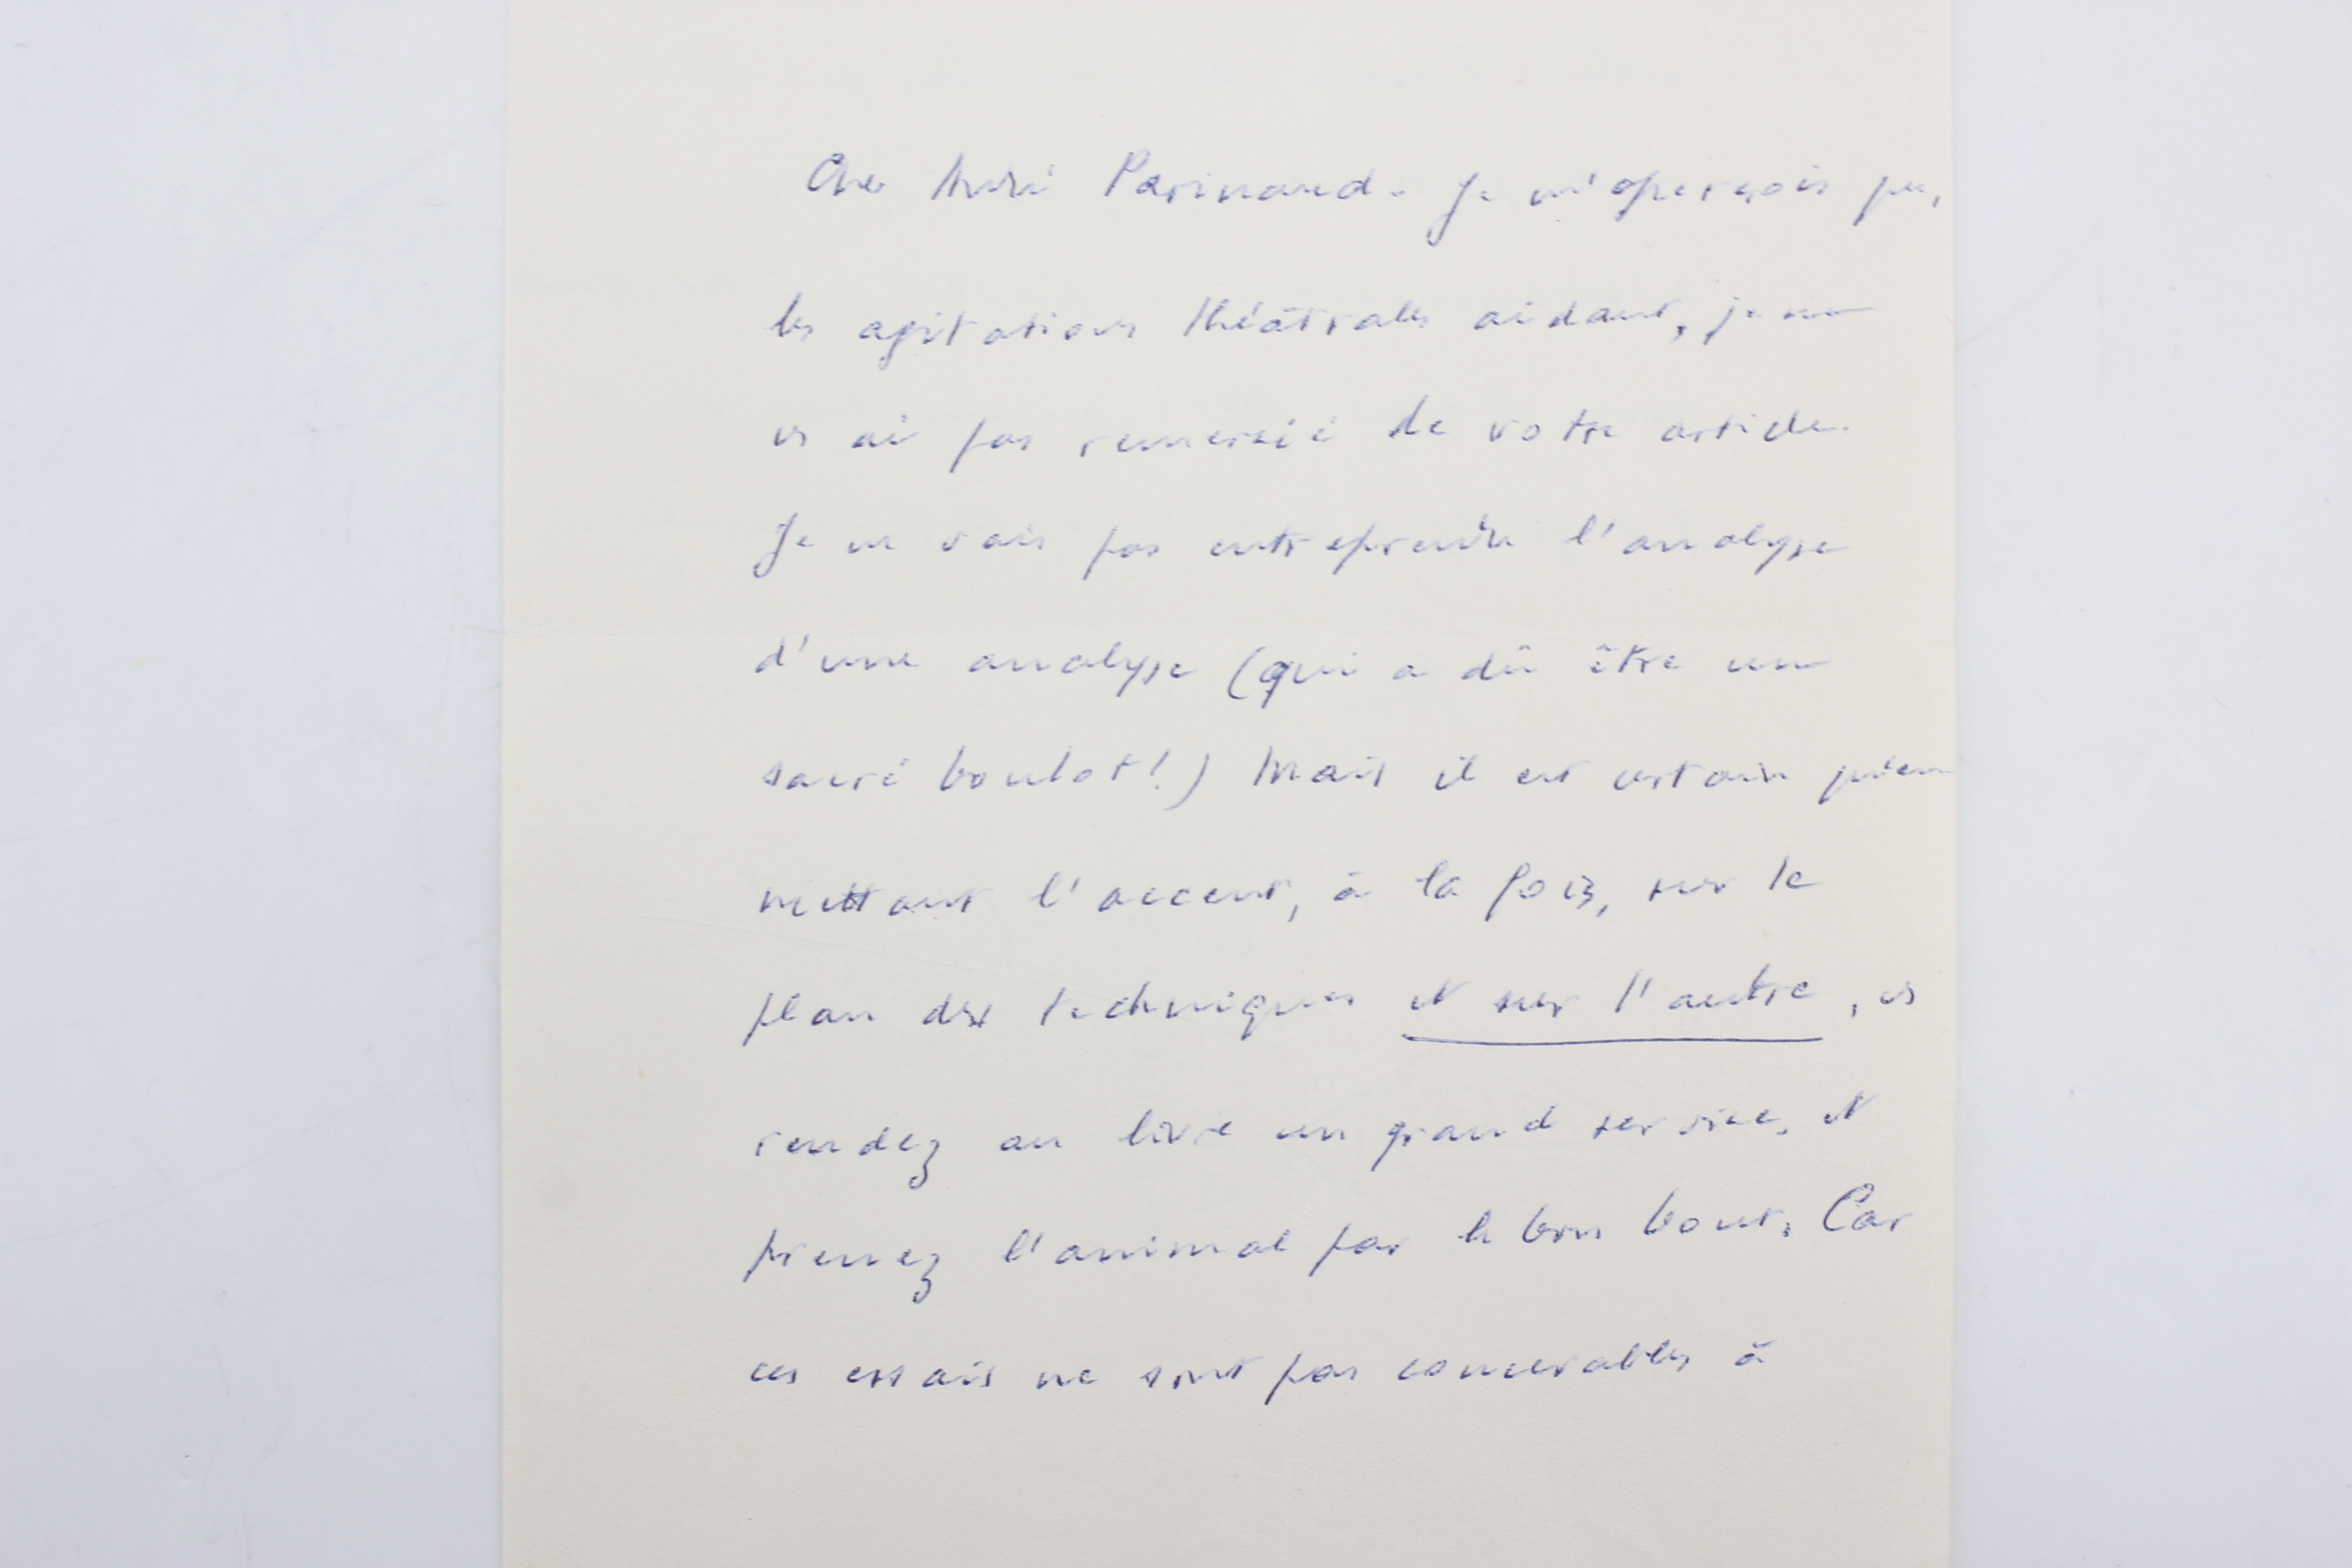 Cher André Parinaud. Je m'aperçois que,
les agitations théâtrales aidant, je ne
vs ai pas remercié de votre article.
Je ne vais pas entreprendre l'analyse
d'une analyse (qui a dû être un
sacré boulot!) Mais il est certain qu'en
mettant l'accent, à la fois, sur le
plan des techniques et sur l'autre, vs
rendez au livre un grand service, et
prenez l'animal par le bon bout. Car
ces essais ne sont pas concevables à